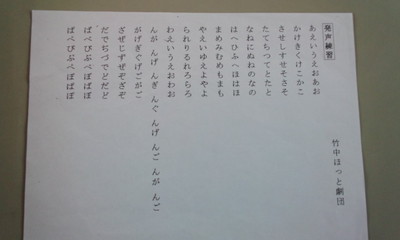 竹中ほっと劇団
発声練習
あえいうえおあお
かけきくけこかこ
させしすせそさそ
たてちつてとたと
なねにぬねのなの
はへひふへほはほ
まめみむめもまも
やえいゆえよやよ
られりるれろらろ
わえいうえおわお
んが んげ んぎ んぐ んげ んご んが んご
がげぎぐげごがご
ざぜじずぜぞざぞ
だでぢづでどだど
ばべびぶべぼばぼ
ぱぺぴぷぺぽぱぽ